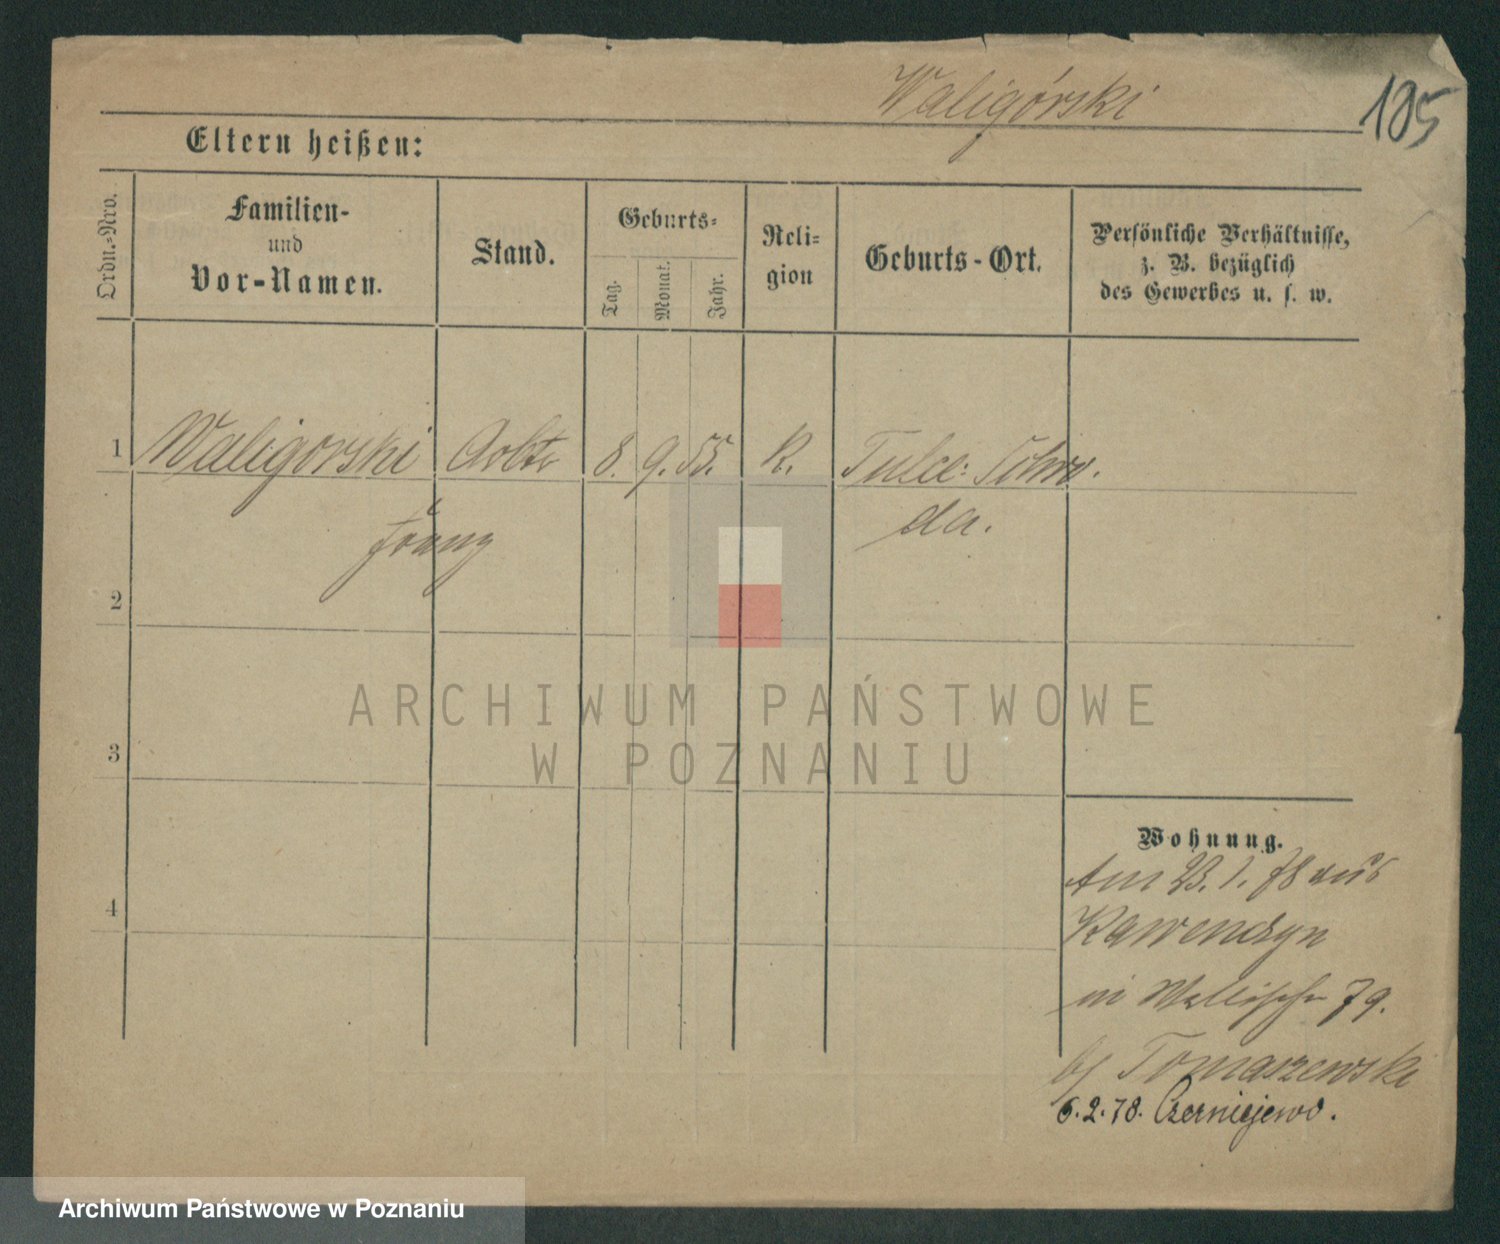 Waligórski
105
Eltern heißen:
Ordn.-Nro.
Familien-
und
Vor-Namen.
Stand.
Geburts-
Tag.
Monat.
Jahr.
Reli-
gion
Geburts-Ort.
Persönliche Verhältnisse,
z. B. bezüglich
des Gewerbes u. s. w.
1
Waligorski
8. 9. 55.
K.
Tulce: Schro-
Franz
da.
2
3
4
ARCHIWUM PAŃSTWOWE
W POZNANIU
Wohnung.
Am 23. 1. 78 aus
in Wallischei 79.
b/ Tomaszewski
6.2.78. Czerniejewo.
Archiwum Państwowe w Poznaniu